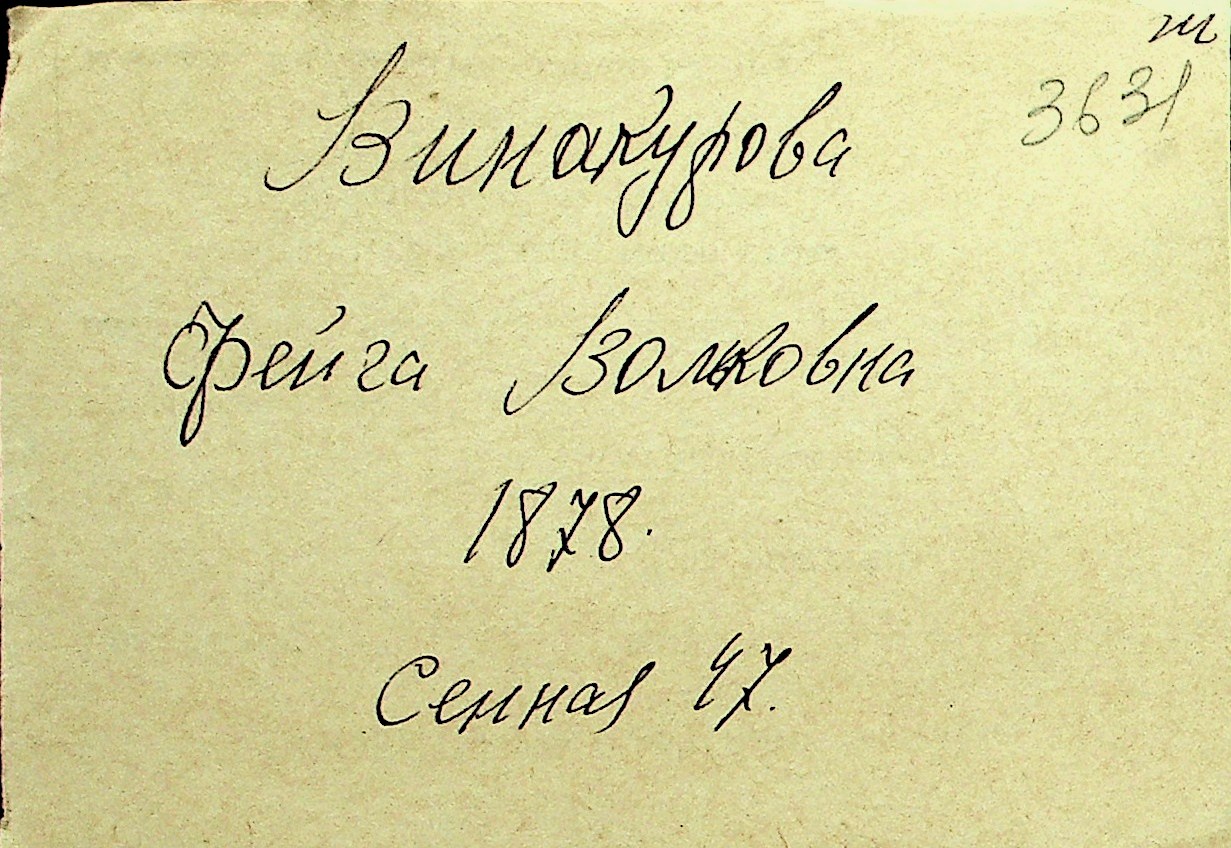 т
3631
Винакурова
Фейга Волковна
1878.
Сенная 47.